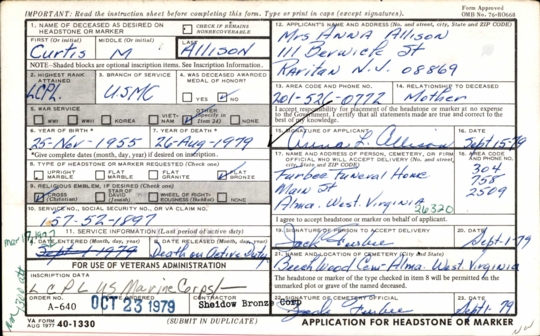 IMPORTANT: Read the instruction sheet before completing this form. Type or print in caps (except signatures).
Form Approved
OMB No. 76-R0660
1. NAME OF DECEASED AS DESIRED ON HEADSTONE OR MARKER
CHECK IF REMAINS NONRECOVERABLE
FIRST (Or Initial) MIDDLE (Or Initial) LAST
Curtis M Allison
NOTE-Shaded blocks are optional inscription items. See Inscription Information.
2. HIGHEST RANK ATTAINED
LCPL
3. BRANCH OF SERVICE
USMC
4. WAS DECEASED AWARDED MEDAL OF HONOR?
YES NO
5. WAR SERVICE
WWI WWII KOREA VIETNAM OTHER (Specify in item 24)
6. YEAR OF BIRTH * 7. YEAR OF DEATH *
25-Nov-1955 26-Aug-1979
*Give complete dates (month, day, year) if desired on inscription.
8. TYPE OF HEADSTONE OR MARKER REQUESTED (Check one)
UPRIGHT MARBLE FLAT MARBLE FLAT GRANITE FLAT BRONZE
9. RELIGIOUS EMBLEM, IF DESIRED (Check one)
CROSS (Christian) STAR OF DAVID (Jewish) WHEEL OF RIGHTEOUSNESS (Buddhist) NONE
10. SERVICE NO., SOCIAL SECURITY NO., OR VA CLAIM NO.
157-52-1897
11. SERVICE INFORMATION (Last period of active duty)
DATE ENTERED (Month, day, year) DATE RELEASED (Month, day, year)
Death on Active Duty
FOR USE OF VETERANS ADMINISTRATION
INSCRIPTION DATA
LCPL US Marine Corps
ORDER NO.
A-640
OCT 23 1979
CONTRACTOR
Sheidow Bronze Corp
12. APPLICANT'S NAME AND ADDRESS (No. and street, city, State and ZIP CODE)
Mrs Anna Allison
111 Berwick St
Raritan N.J. 08869
13. AREA CODE AND PHONE NO. 14. RELATIONSHIP TO DECEASED
201-526-0772 Mother
I accept responsibility for placement of the headstone or marker at no expense to the Government. I certify that all statements made are true and correct to the best of my knowledge.
15. SIGNATURE OF APPLICANT 16. DATE
L. Allison Sept-15-79
17. NAME AND ADDRESS OF PERSON, CEMETERY, OR FIRM OFFICIAL WHO WILL ACCEPT DELIVERY (No. and street, city, State and ZIP CODE)
18. AREA CODE AND PHONE NO.
Furbee Funeral Home
Main St
Alma. West. Virginia
26320
304
758
2509
I agree to accept headstone or marker on behalf of applicant.
19. SIGNATURE OF PERSON TO ACCEPT DELIVERY 20. DATE
Jack Furbee Sept-1-79
21. NAME AND LOCATION OF CEMETERY (City and State)
Beechwood Cem-Alma. West. Virginia
The headstone or marker of the type checked in item 8 will be permitted on the unmarked plot or grave of the named deceased.
22. SIGNATURE OF CEMETERY OFFICIAL 23. DATE
Jack Furbee Sept-1-79
VA FORM AUG 1977 40-1330
(SUBMIT IN DUPLICATE)
APPLICATION FOR HEADSTONE OR MARKER